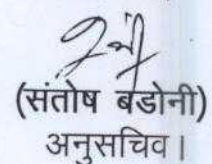 (संतोष बडोनी)
अनुसचिव।